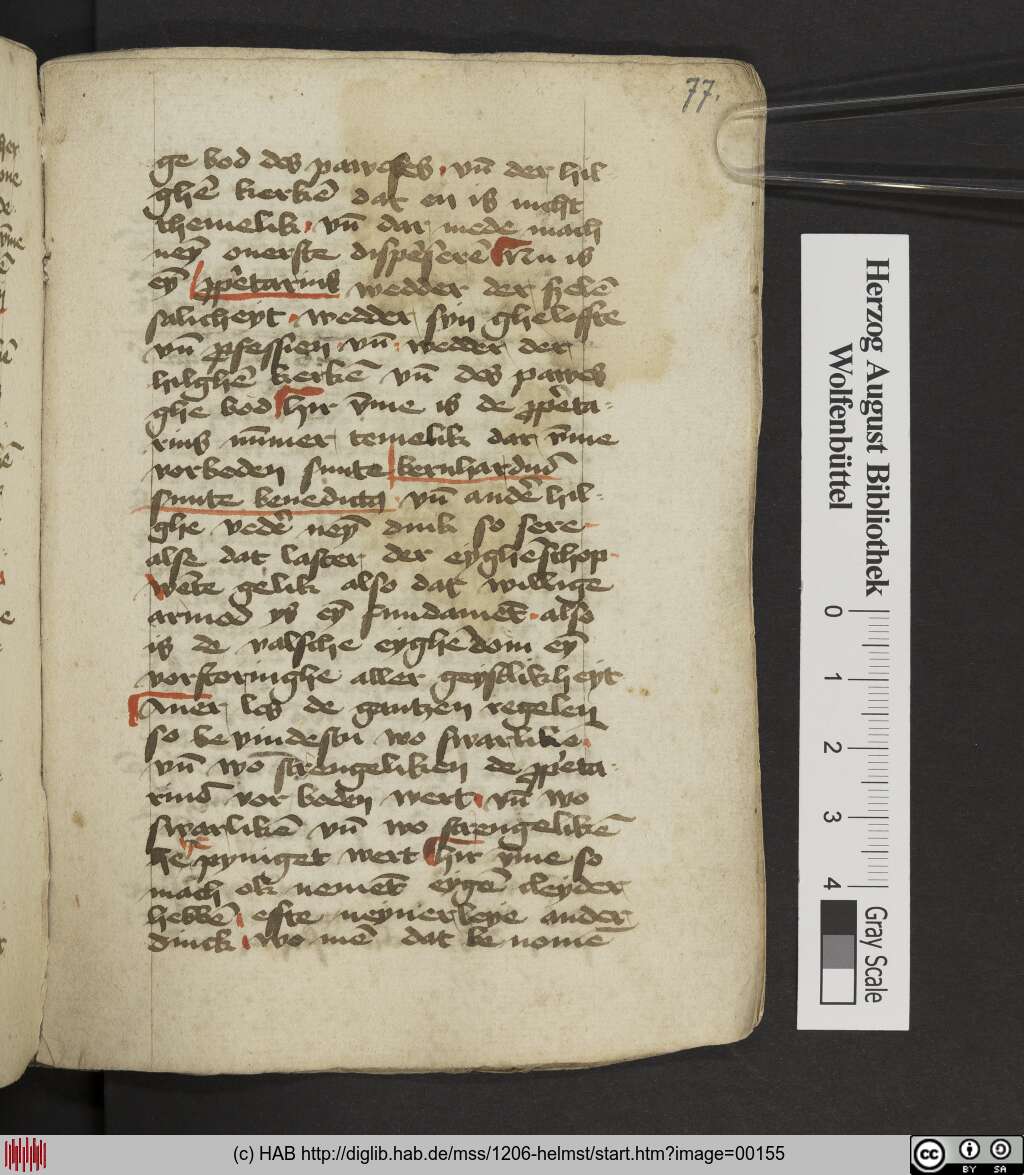 77.
ge bod des paweses · vn̄ der hil
ghē kerkē dat en is nicht
themelik · vn̄ dar mede mach
neȳ ouerste dispēserē Nu is
eȳ ꝓpetarius wedder der selē
salicheyt · wedder syn gheloffte
vn̄ ꝓfessien · vn̄ wedder der
hilghē kerkē vn̄ des pawes
ghe bod hir v̄me is de ꝓpeta-
rius nūmer temelik dar v̄me
vorboden sunte bernhardus
sunte benedictꝰ vn̄ andē hil-
ghe vedē neȳ dink so sere
alse dat laster der eyghēschop
wēte gelik also dat willige
armod ys eȳ fundamēt · also
is de valsche eyghedom eȳ
vorstoringhe aller geystlikheyt
Auer les de gantzen regelen
so be vindestu wo swarlikē
vn̄ wo strengeliken de ꝓpeta-
rius vor boden wert · vn̄ wo
swarlikē vn̄ wo strengelikē
he pyniget wert hir v̄me so
mach ok nemēt eygē cleyder
hebbē · efte neynerleye ander
dinck · wo mē dat be nomē
Herzog August Bibliothek
Wolfenbüttel
0 1 2 3 4
Gray Scale
(c) HAB http://diglib.hab.de/mss/1206-helmst/start.htm?image=00155
cc BY SA